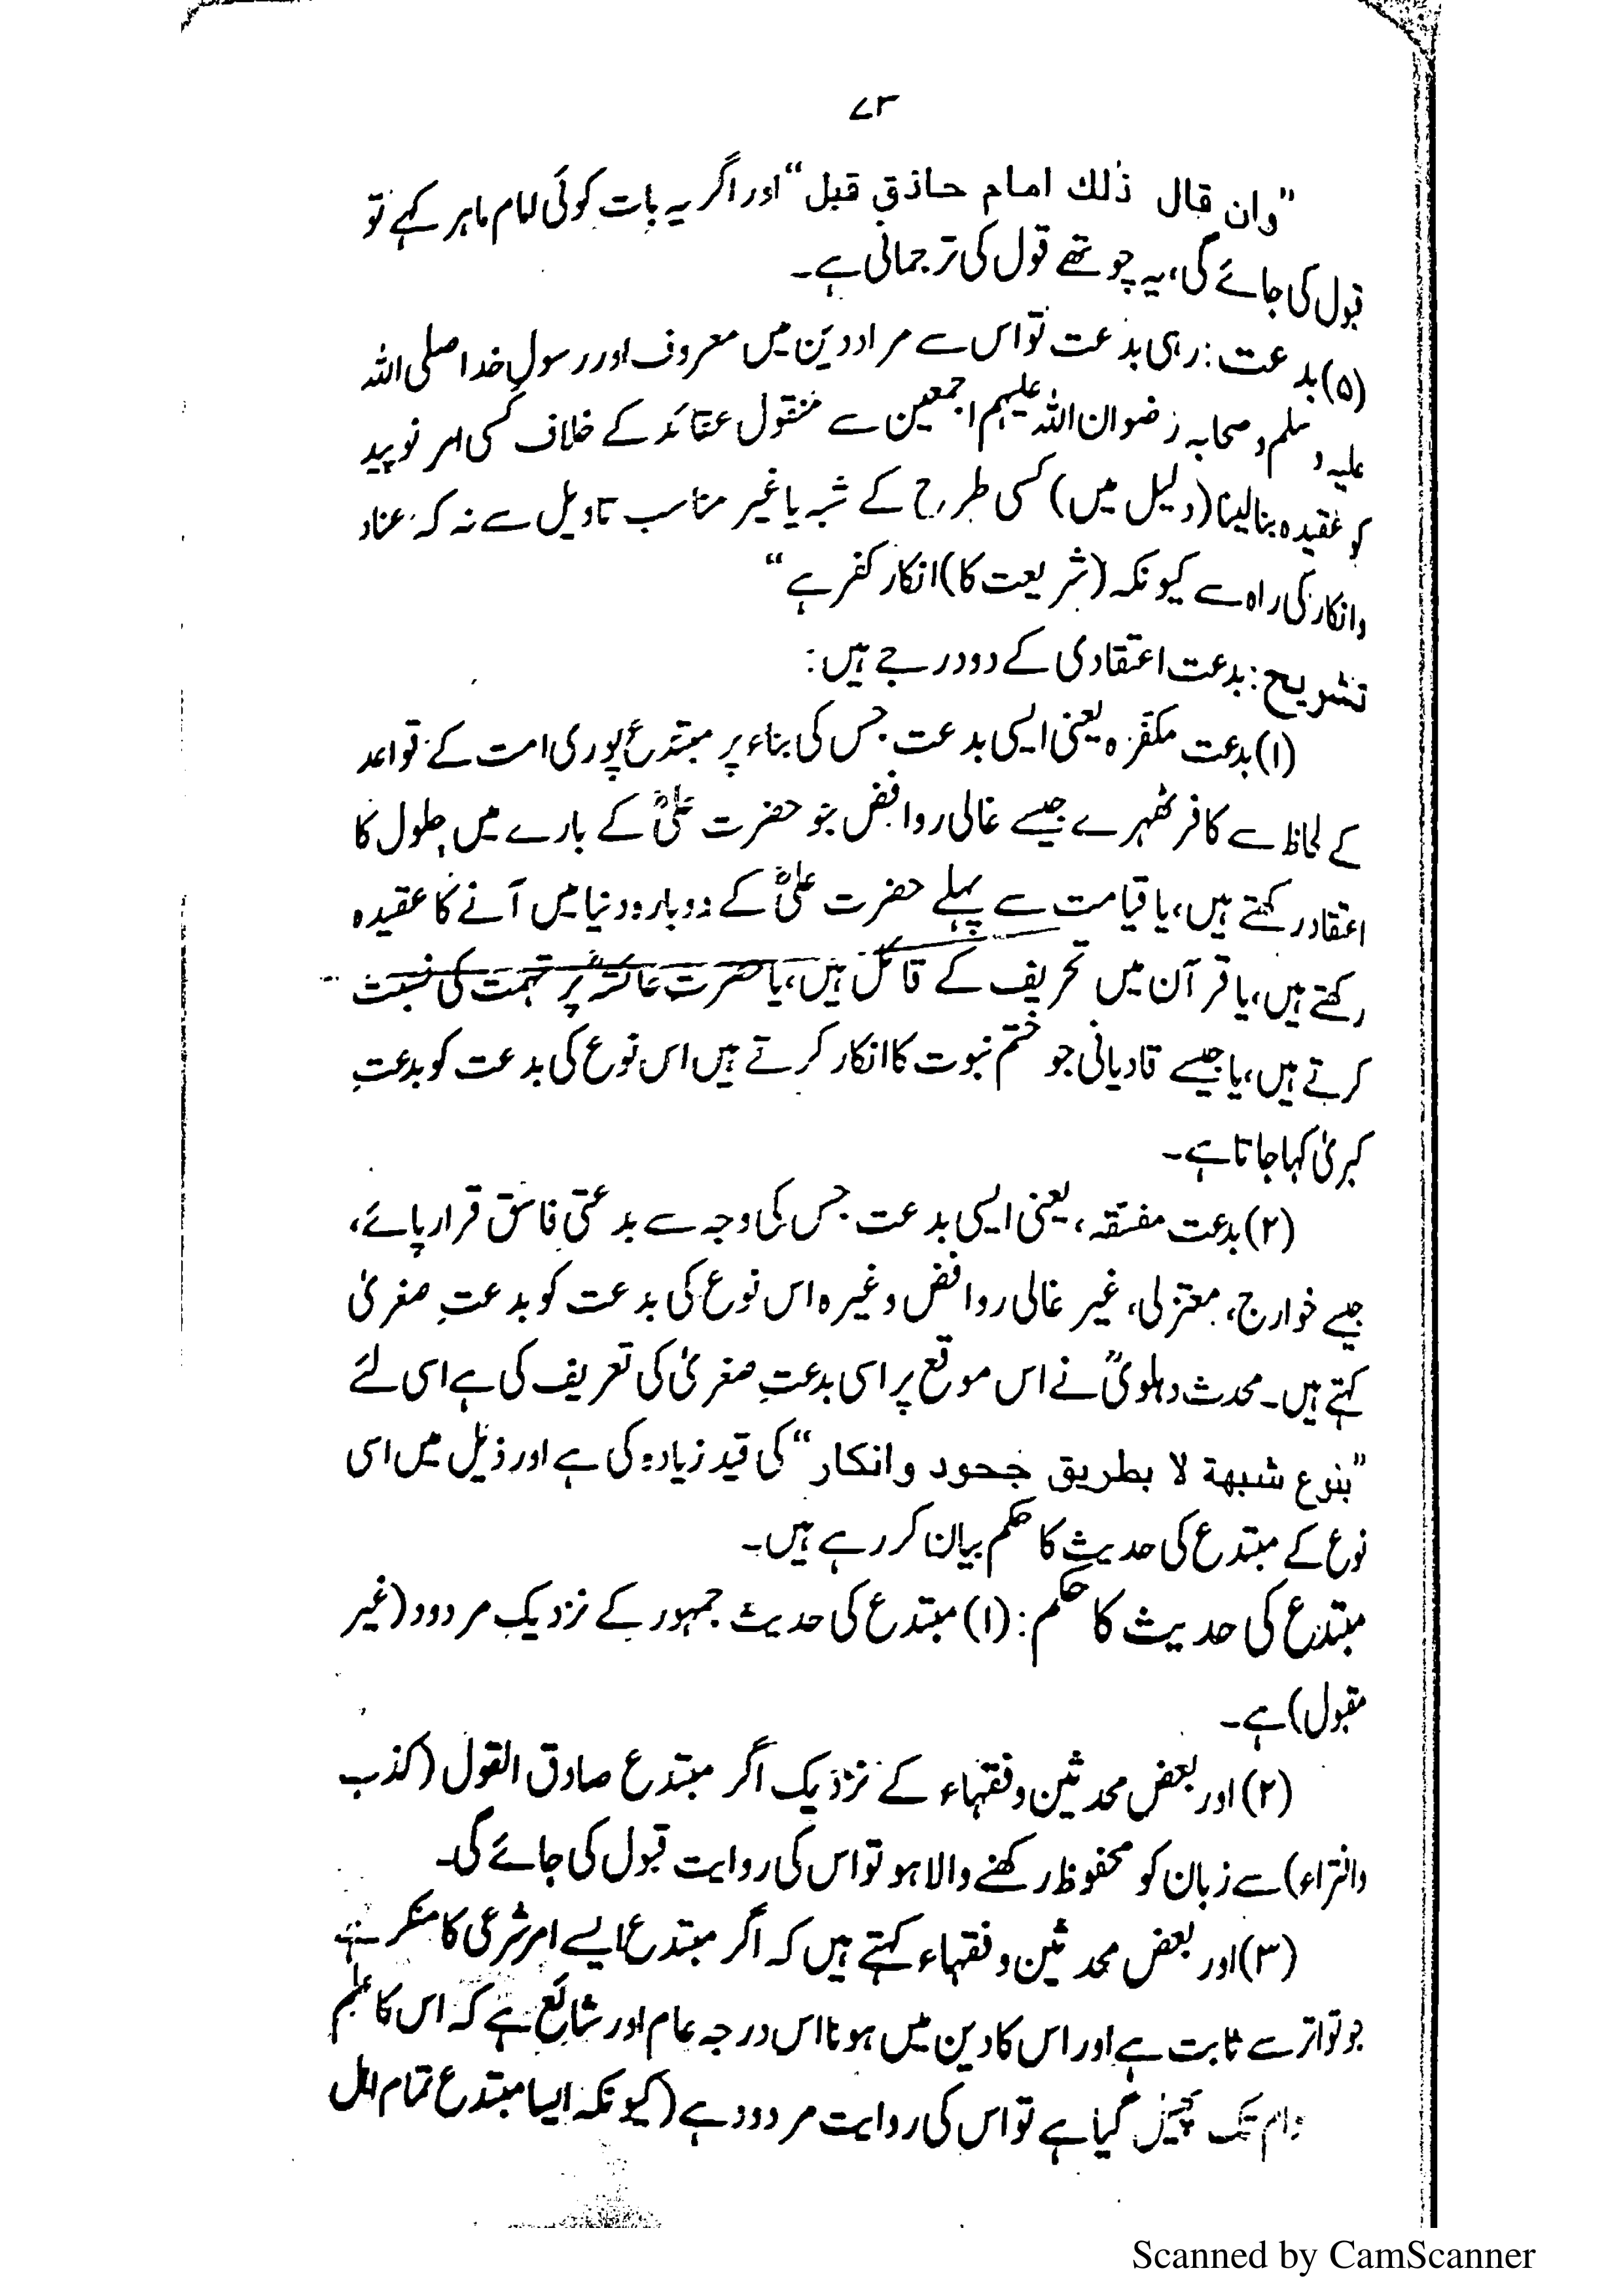 ۷۳
”وان قال ذلك امام حاذق قبل“ اور اگر یہ بات کوئی امام ماہر کہے تو
قبول کی جائے گی، یہ چوتھے قول کی ترجمانی ہے۔
(۵) بدعت: رہی بدعت تو اس سے مراد دین میں معروف اور رسولِ خدا صلی اللہ
علیہ وسلم و صحابہ رضوان اللہ علیہم اجمعین سے منقول عقائد کے خلاف کسی امر نوپید
کو عقیدہ بنالینا (دلیل میں) کسی طرح کے شبہ یا غیر مناسب تاویل سے نہ کہ عناد
وانکار کی راہ سے کیونکہ (شریعت کا) انکار کفر ہے“
تشریح: بدعت اعتقادی کے دو درجے ہیں:
(۱) بدعت مکفرہ یعنی ایسی بدعت جس کی بناء پر مبتدع پوری امت کے قواعد
کے لحاظ سے کافر ٹھہرے جیسے غالی روافض جو حضرت علیؓ کے بارے میں حلول کا
اعتقاد رکھتے ہیں، یا قیامت سے پہلے حضرت علیؓ کے دوبارہ دنیا میں آنے کا عقیدہ
رکھتے ہیں، یا قرآن میں تحریف کے قائل ہیں، یا حضرت عائشہؓ پر تہمت کی نسبت
کرتے ہیں، یا جیسے قادیانی جو ختم نبوت کا انکار کرتے ہیں اس نوع کی بدعت کو بدعتِ
کبریٰ کہا جاتا ہے۔
(۲) بدعت مفسقہ، یعنی ایسی بدعت جس کی وجہ سے بدعتی فاسق قرار پائے،
جیسے خوارج، معتزلی، غیر غالی روافض وغیرہ اس نوع کی بدعت کو بدعتِ صغریٰ
کہتے ہیں۔ محدث دہلویؒ نے اس موقع پر اسی بدعتِ صغریٰ کی تعریف کی ہے اسی لئے
”بنوع شبهة لا بطريق جحود وانكار“ کی قید زیادہ کی ہے اور ذیل میں اسی
نوع کے مبتدع کی حدیث کا حکم بیان کر رہے ہیں۔
مبتدع کی حدیث کا حکم: (۱) مبتدع کی حدیث جمہور کے نزدیک مردود (غیر
مقبول) ہے۔
(۲) اور بعض محدثین وفقہاء کے نزدیک اگر مبتدع صادق القول (کذب
وافتراء) سے زبان کو محفوظ رکھنے والا ہو تو اس کی روایت قبول کی جائے گی۔
(۳) اور بعض محدثین وفقہاء کہتے ہیں کہ اگر مبتدع ایسے امر شرعی کا منکر ہے
جو تواتر سے ثابت ہے اور اس کا دین میں ہونا اس درجہ عام اور شائع ہے کہ اس کا علم
تک پھیل گیا ہے تو اس کی روایت مردود ہے (کیونکہ ایسا مبتدع تمام اہل
Scanned by CamScanner